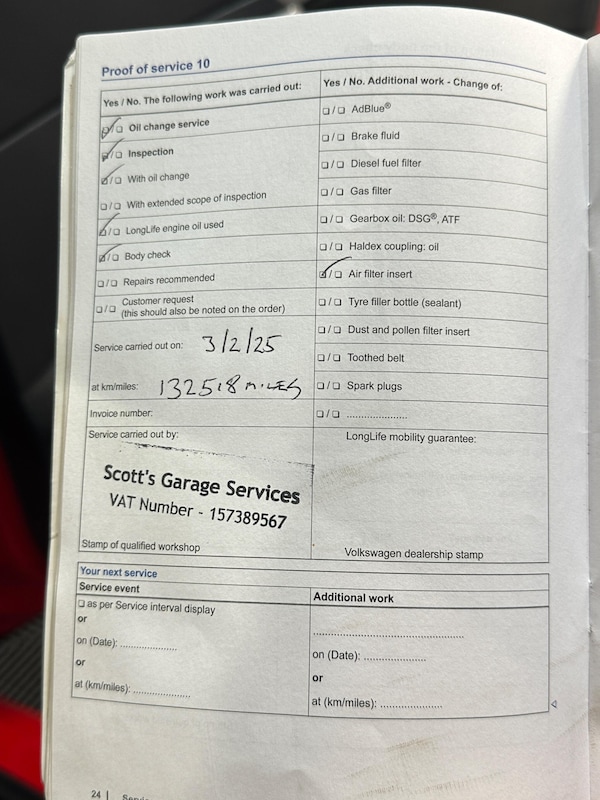 Proof of service 10
Yes / No. The following work was carried out:
☑/☐ Oil change service
☑/☐ Inspection
☑/☐ With oil change
☐/☐ With extended scope of inspection
☑/☐ LongLife engine oil used
☑/☐ Body check
☐/☐ Repairs recommended
☐/☐ Customer request
(this should also be noted on the order)
Service carried out on: 3/2/25
at km/miles: 132518 MILES
Invoice number:
Service carried out by:
Scott's Garage Services
VAT Number - 157389567
Stamp of qualified workshop
Yes / No. Additional work - Change of:
☐/☐ AdBlue®
☐/☐ Brake fluid
☐/☐ Diesel fuel filter
☐/☐ Gas filter
☐/☐ Gearbox oil: DSG®, ATF
☐/☐ Haldex coupling: oil
☑/☐ Air filter insert
☐/☐ Tyre filler bottle (sealant)
☐/☐ Dust and pollen filter insert
☐/☐ Toothed belt
☐/☐ Spark plugs
☐/☐ ....................
LongLife mobility guarantee:
Volkswagen dealership stamp
Your next service
Service event
☐ as per Service interval display
or
on (Date): ...................
or
at (km/miles): ...................
Additional work
..................................................
on (Date): .....................
or
at (km/miles): .....................
24 |